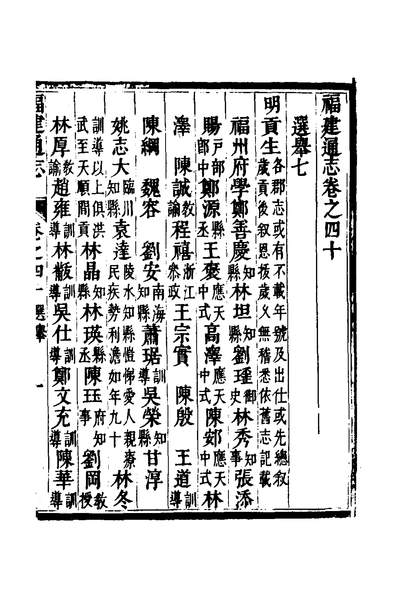 福建通志卷之四十
選舉七
明貢生各郡志或有不載年號及出仕或先總敘歲貢後敘恩拔歲久無稽悉依舊志記載
福州府學鄭善慶知縣林坦知縣劉瑾御史林秀知事張添
賜戶部郎中鄭源縣丞王褒應天中式高澤應天中式陳郊應天中式林
澤 陳誠教諭程禧浙江叅政王宗實 陳殷 王道訓導
陳綱 魏容 劉安南海知縣蕭琚訓導吳榮知縣甘淳
姚志大臨川知縣袁達陵水知縣愷悌愛人親療民疾勢利澹如年九十林冬
訓導以上俱洪武至天順間貢林晶知縣林瑛縣丞陳玨府知事劉岡教授
林厚教諭趙雍訓導林馥訓導吳仕訓導鄭文充訓導陳華訓導
福建通志 卷之四十 選舉 一